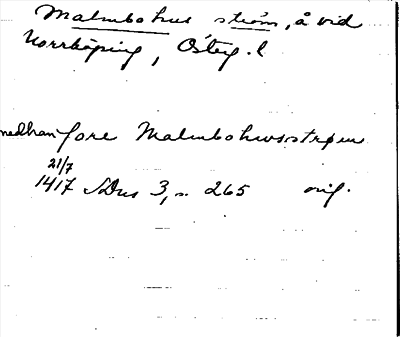 Malmbohus ström, å vid
Norrköping, Östg. l
nedhan fore Malmbohusstrøm
21/7
1417 SDns 3, s. 265 orig.